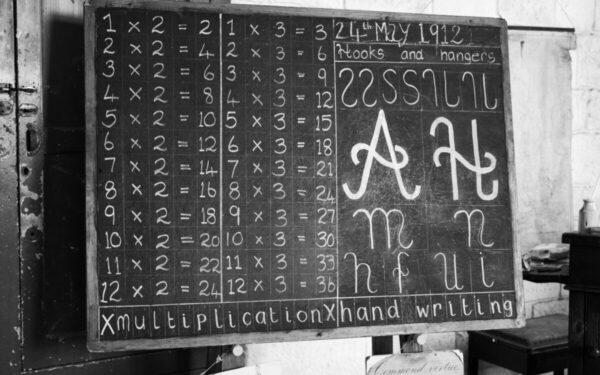 1 × 2 = 2
2 × 2 = 4
3 × 2 = 6
4 × 2 = 8
5 × 2 = 10
6 × 2 = 12
7 × 2 = 14
8 × 2 = 16
9 × 2 = 18
10 × 2 = 20
11 × 2 = 22
12 × 2 = 24
1 × 3 = 3
2 × 3 = 6
3 × 3 = 9
4 × 3 = 12
5 × 3 = 15
6 × 3 = 18
7 × 3 = 21
8 × 3 = 24
9 × 3 = 27
10 × 3 = 30
11 × 3 = 33
12 × 3 = 36
X multiplication X
24th May 1912
Hooks and hangers
A H
m n
h f u i
hand writing
Commend virtue